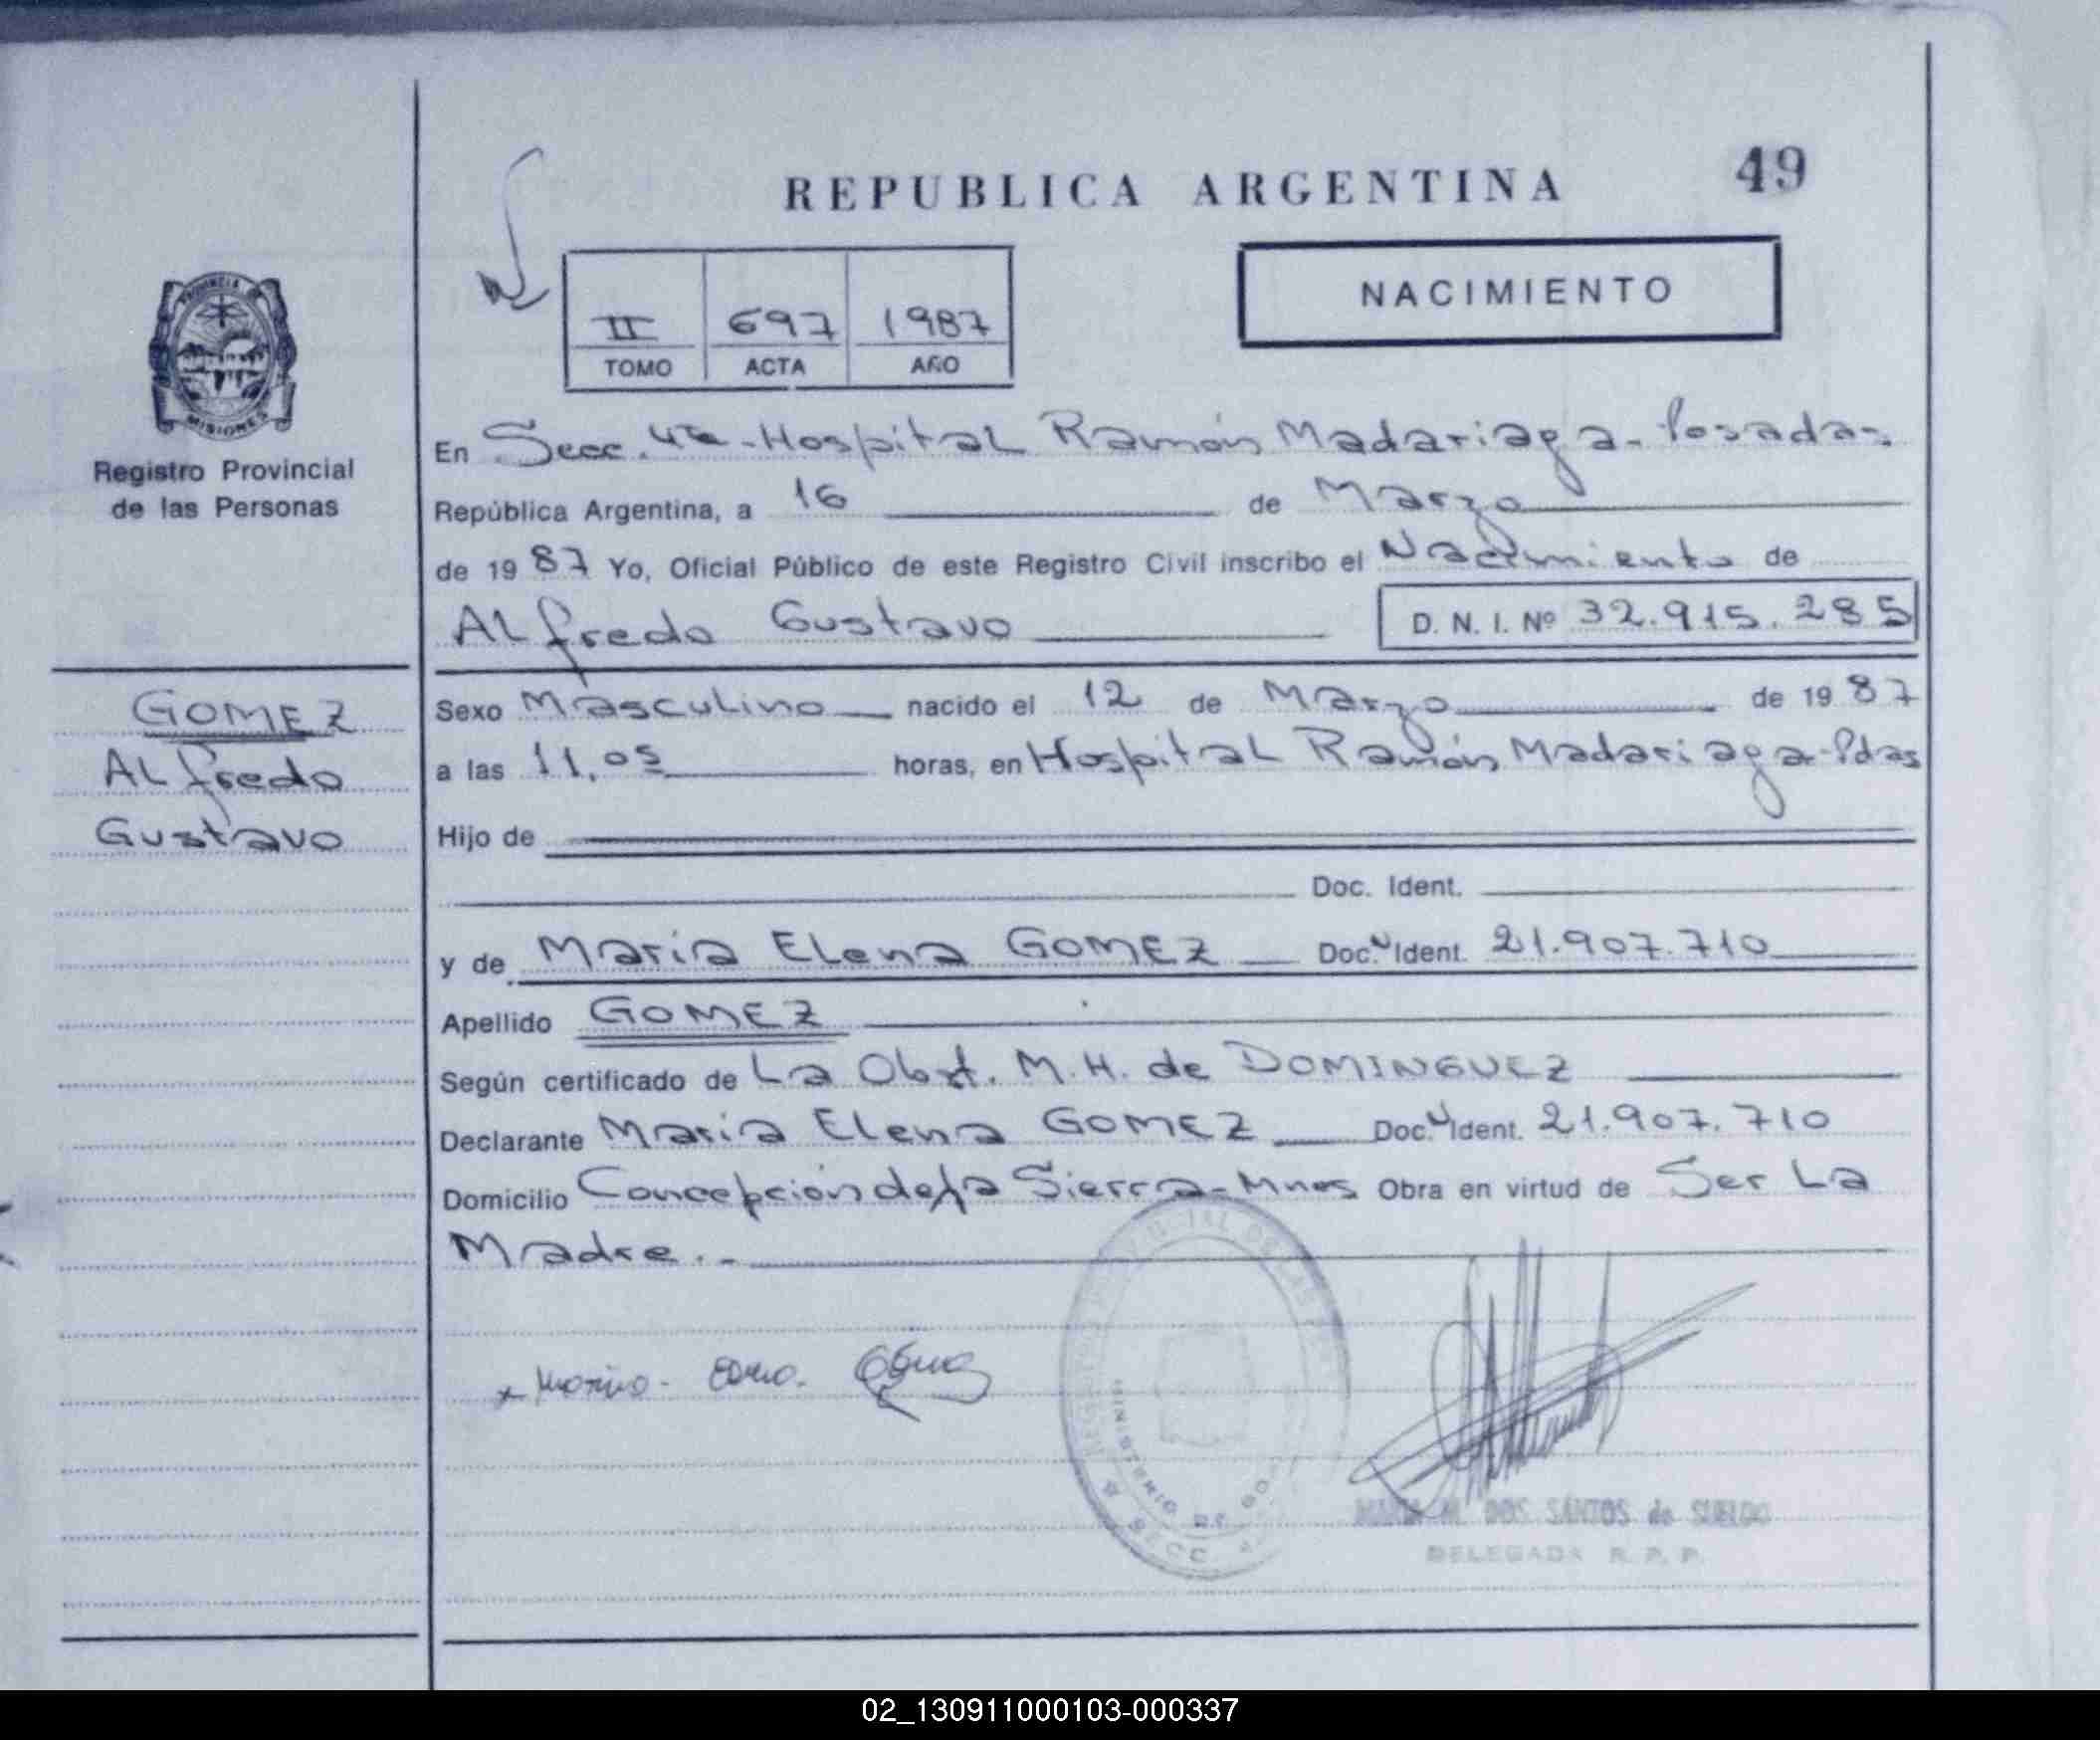 REPUBLICA ARGENTINA
49
NACIMIENTO
II 697 1987
TOMO ACTA AÑO
PROVINCIA DE
MISIONES
Registro Provincial
de las Personas
En Secc. 4ta - Hospital Ramón Madariaga - Posadas
República Argentina, a 16 de Marzo
de 1987 Yo, Oficial Público de este Registro Civil inscribo el Nacimiento de
ALfredo Gustavo D. N. I. Nº 32.915.285
GOMEZ
ALfredo
Gustavo
Sexo Masculino nacido el 12 de Marzo de 1987
a las 11,05 horas, en Hospital Ramón Madariaga - Pdas
Hijo de
Doc. Ident.
y de María ELena GOMEZ Doc. Ident. 21.907.710
Apellido GOMEZ
Según certificado de La Obst. M.H. de DOMINGUEZ
Declarante María ELena GOMEZ Doc. Ident. 21.907.710
Domicilio Concepción de la Sierra - Mnes Obra en virtud de Ser La
Madre.-
MINISTERIO DE GO
SECC
DOS SANTOS de SUELDO
DELEGADA R. P. P.
02_130911000103-000337